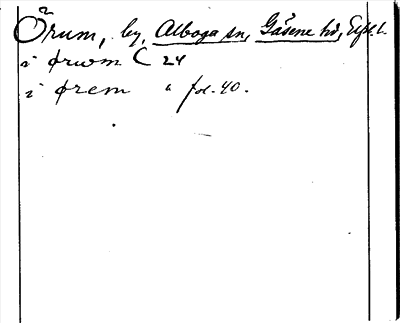 Örum, by, Alboga sn, Gäsene hd, Elfsb. l.
i ørwm C 24
i ørem " fol. 40.